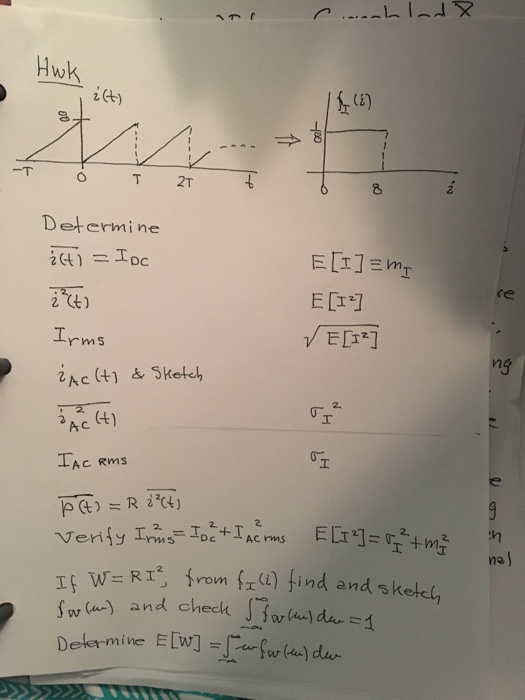 Hwk
i(t) f_I(i)
8 ⇒ 1/8
-T 0 T 2T t 0 8 i
Determine
\overline{i(t)} = I_{DC} E[I] ≡ m_I
\overline{i²(t)} E[I²]
I_{rms} √E[I²]
i_{AC}(t) & Sketch
\overline{i_{AC}²(t)} σ_I²
I_{AC RMS} σ_I
\overline{p(t)} = R \overline{i²(t)}
Verify I²_{rms} = I²_{DC} + I²_{AC rms} E[I²] = σ_I² + m_I²
If W = RI², from f_I(i) find and sketch
f_W(w) and check ∫_{-∞}^{∞} f_W(w) dw = 1
Determine E[W] = ∫_{-∞}^{∞} w f_W(w) dw